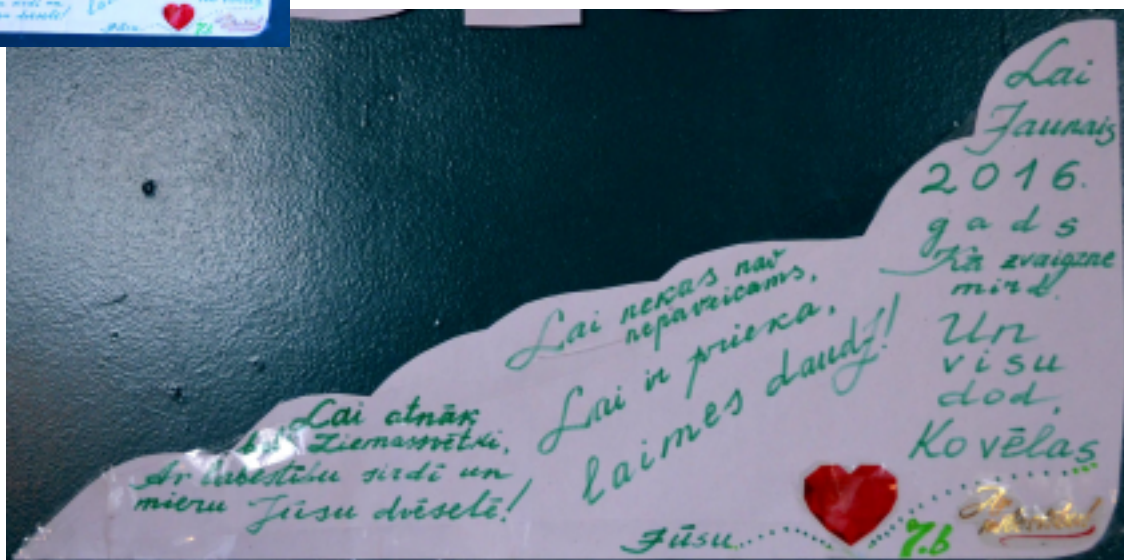 Lai atnāk
Ziemassvētki,
Ar labestību sirdī un
mieru Jūsu dvēselē!
Lai nekas nav
nepaveicams,
Lai ir prieka,
laimes daudz!
Lai
Jaunais
2016.
gads
Kā zvaigzne
mird.
Un
visu
dod,
Ko vēlas
Jūsu
7.b